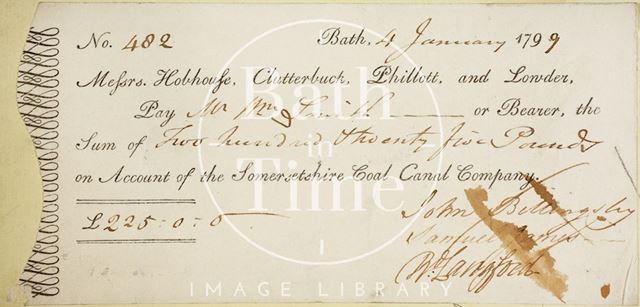 No. 482 Bath, 4 January 1799
Messrs. Hobhouse, Clutterbuck, Phillott, and Lowder,
Pay Mr Wm Smith or Bearer, the
Sum of Two hundred & twenty-five Pounds
on Account of the Somersetshire Coal Canal Company.
£225-0-0
John Billingsley
Samuel
Wm Langford
Bath
in
Time
IMAGE LIBRARY